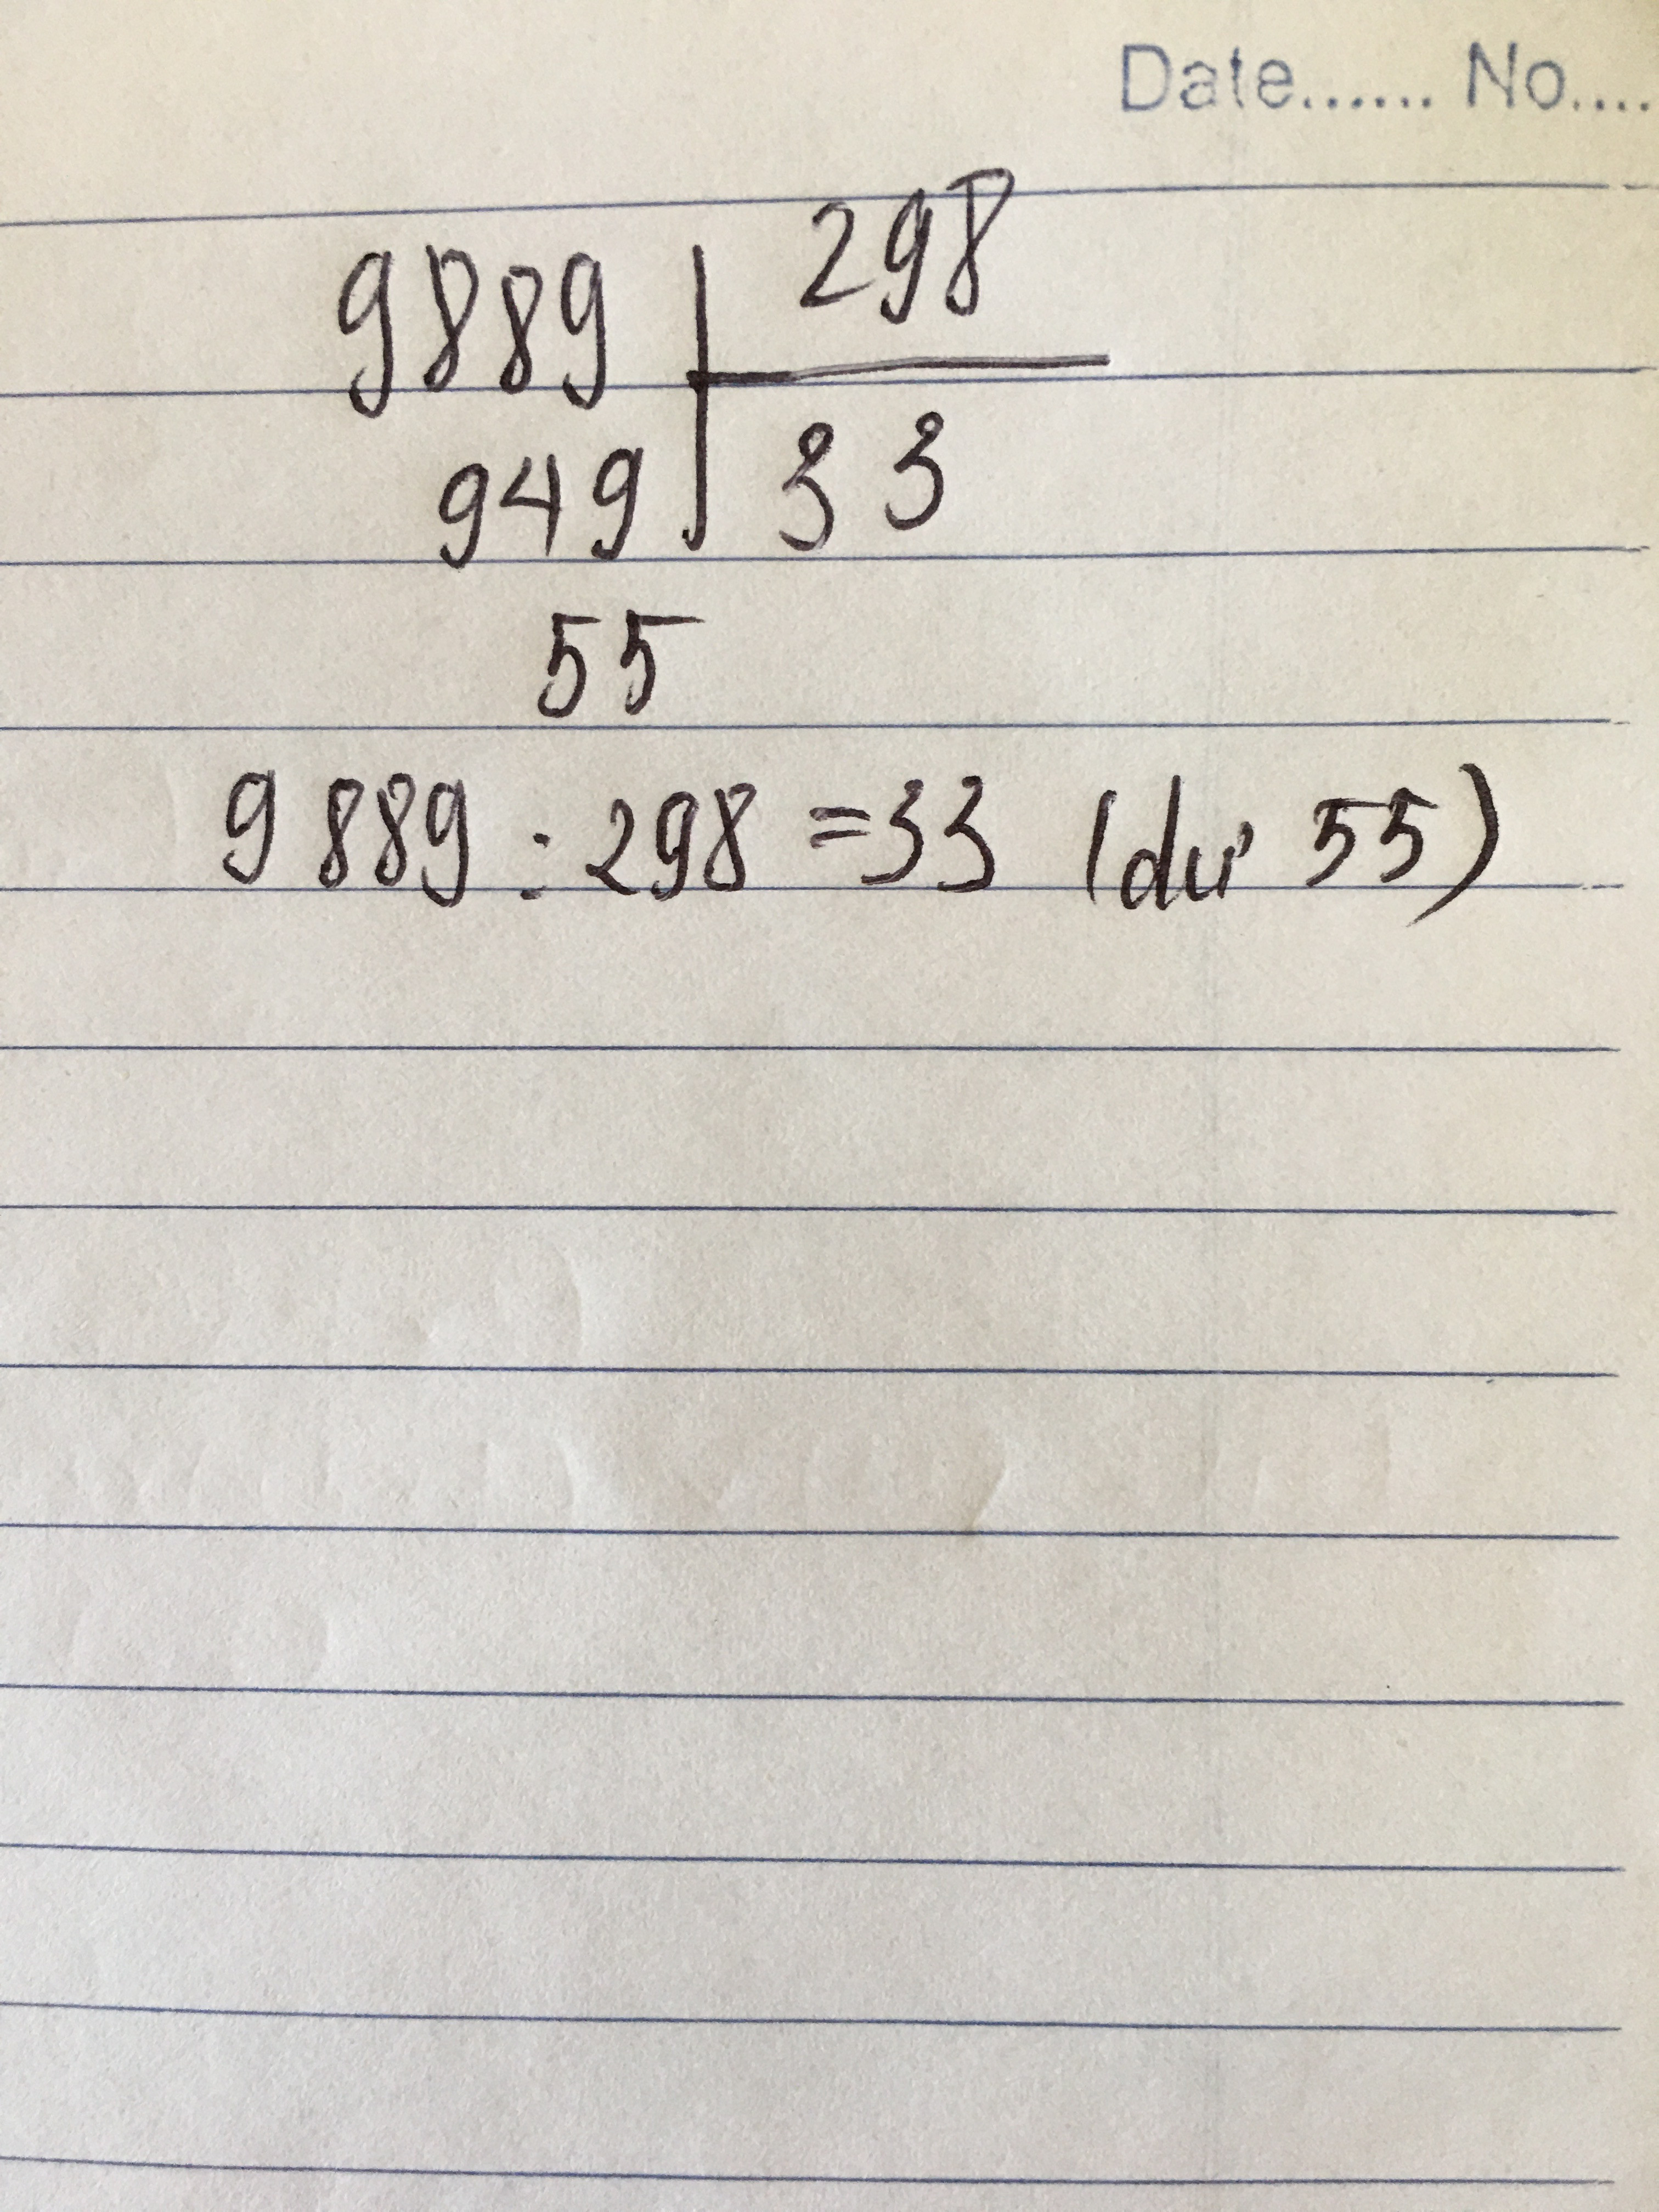 Date...... No....
9889 298
949 33
55
9889 : 298 = 33 (dư 55)